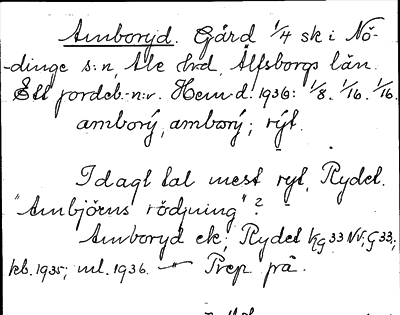 Amboryd. Gård 1/4 sk i Nö-
-dinge s:n, Ale hrd, Älfsborgs län.
Ett jordeb.-n:r. Hem.d. 1936: 1/8. 1/16. 1/16.
amborý, amborý; rýt.
I dagl tal mest ryt, Rydet.
"Ambjörns rödjning"?
Amboryd ek; Rydet kg 33 NV; G 33;
kb. 1935; ml. 1936. — Prep på.